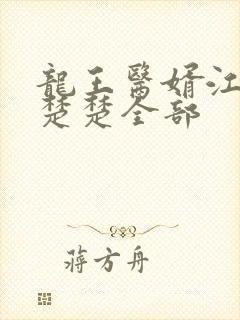 龍王醫婿江
楚楚全部
蔣方舟